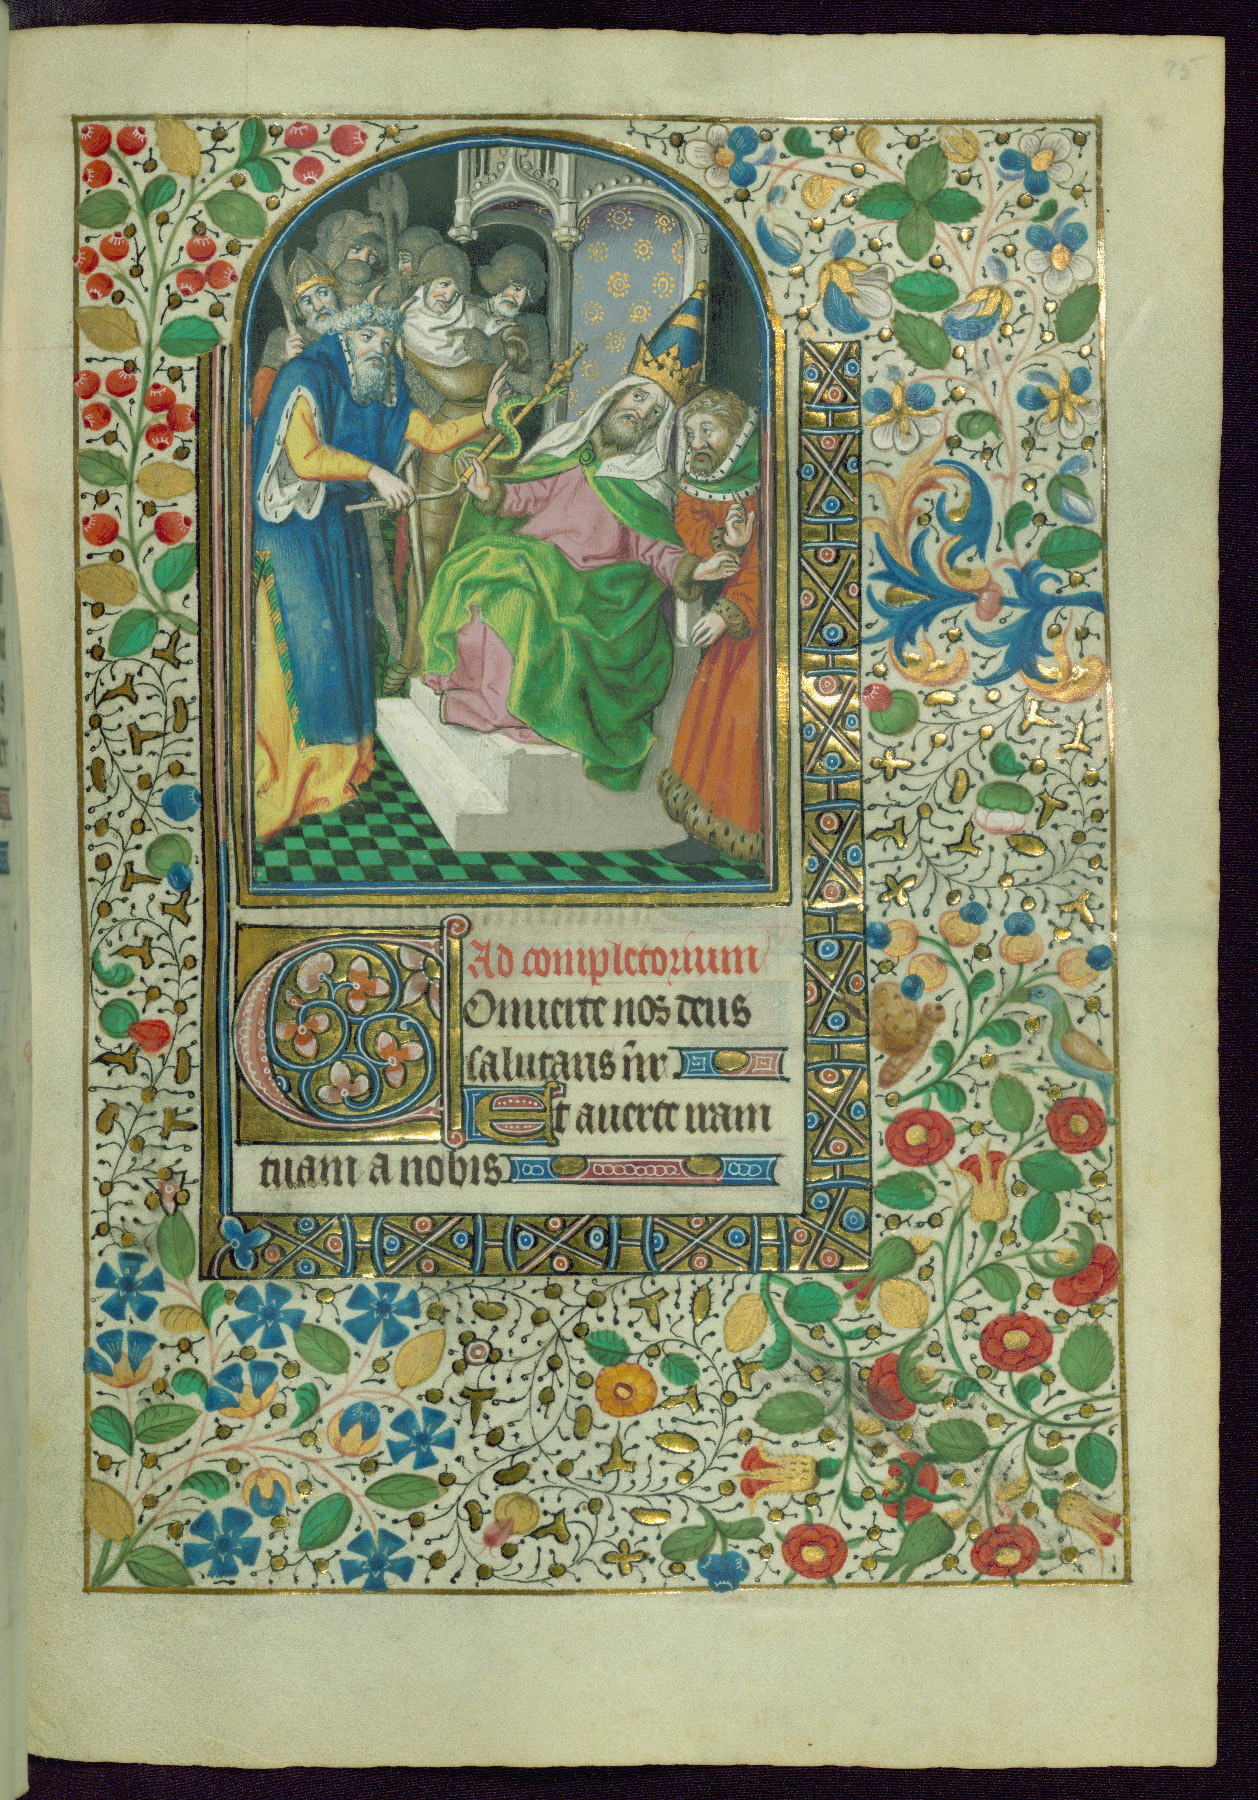 75
Ad completorium
Conuerte nos deus
salutaris nr̄
Et auerte iram
tuam a nobis